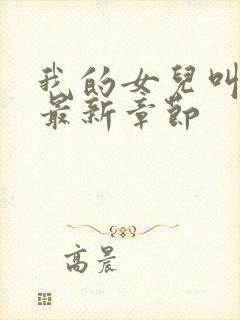 我的女兒叫
最新章節
高晨